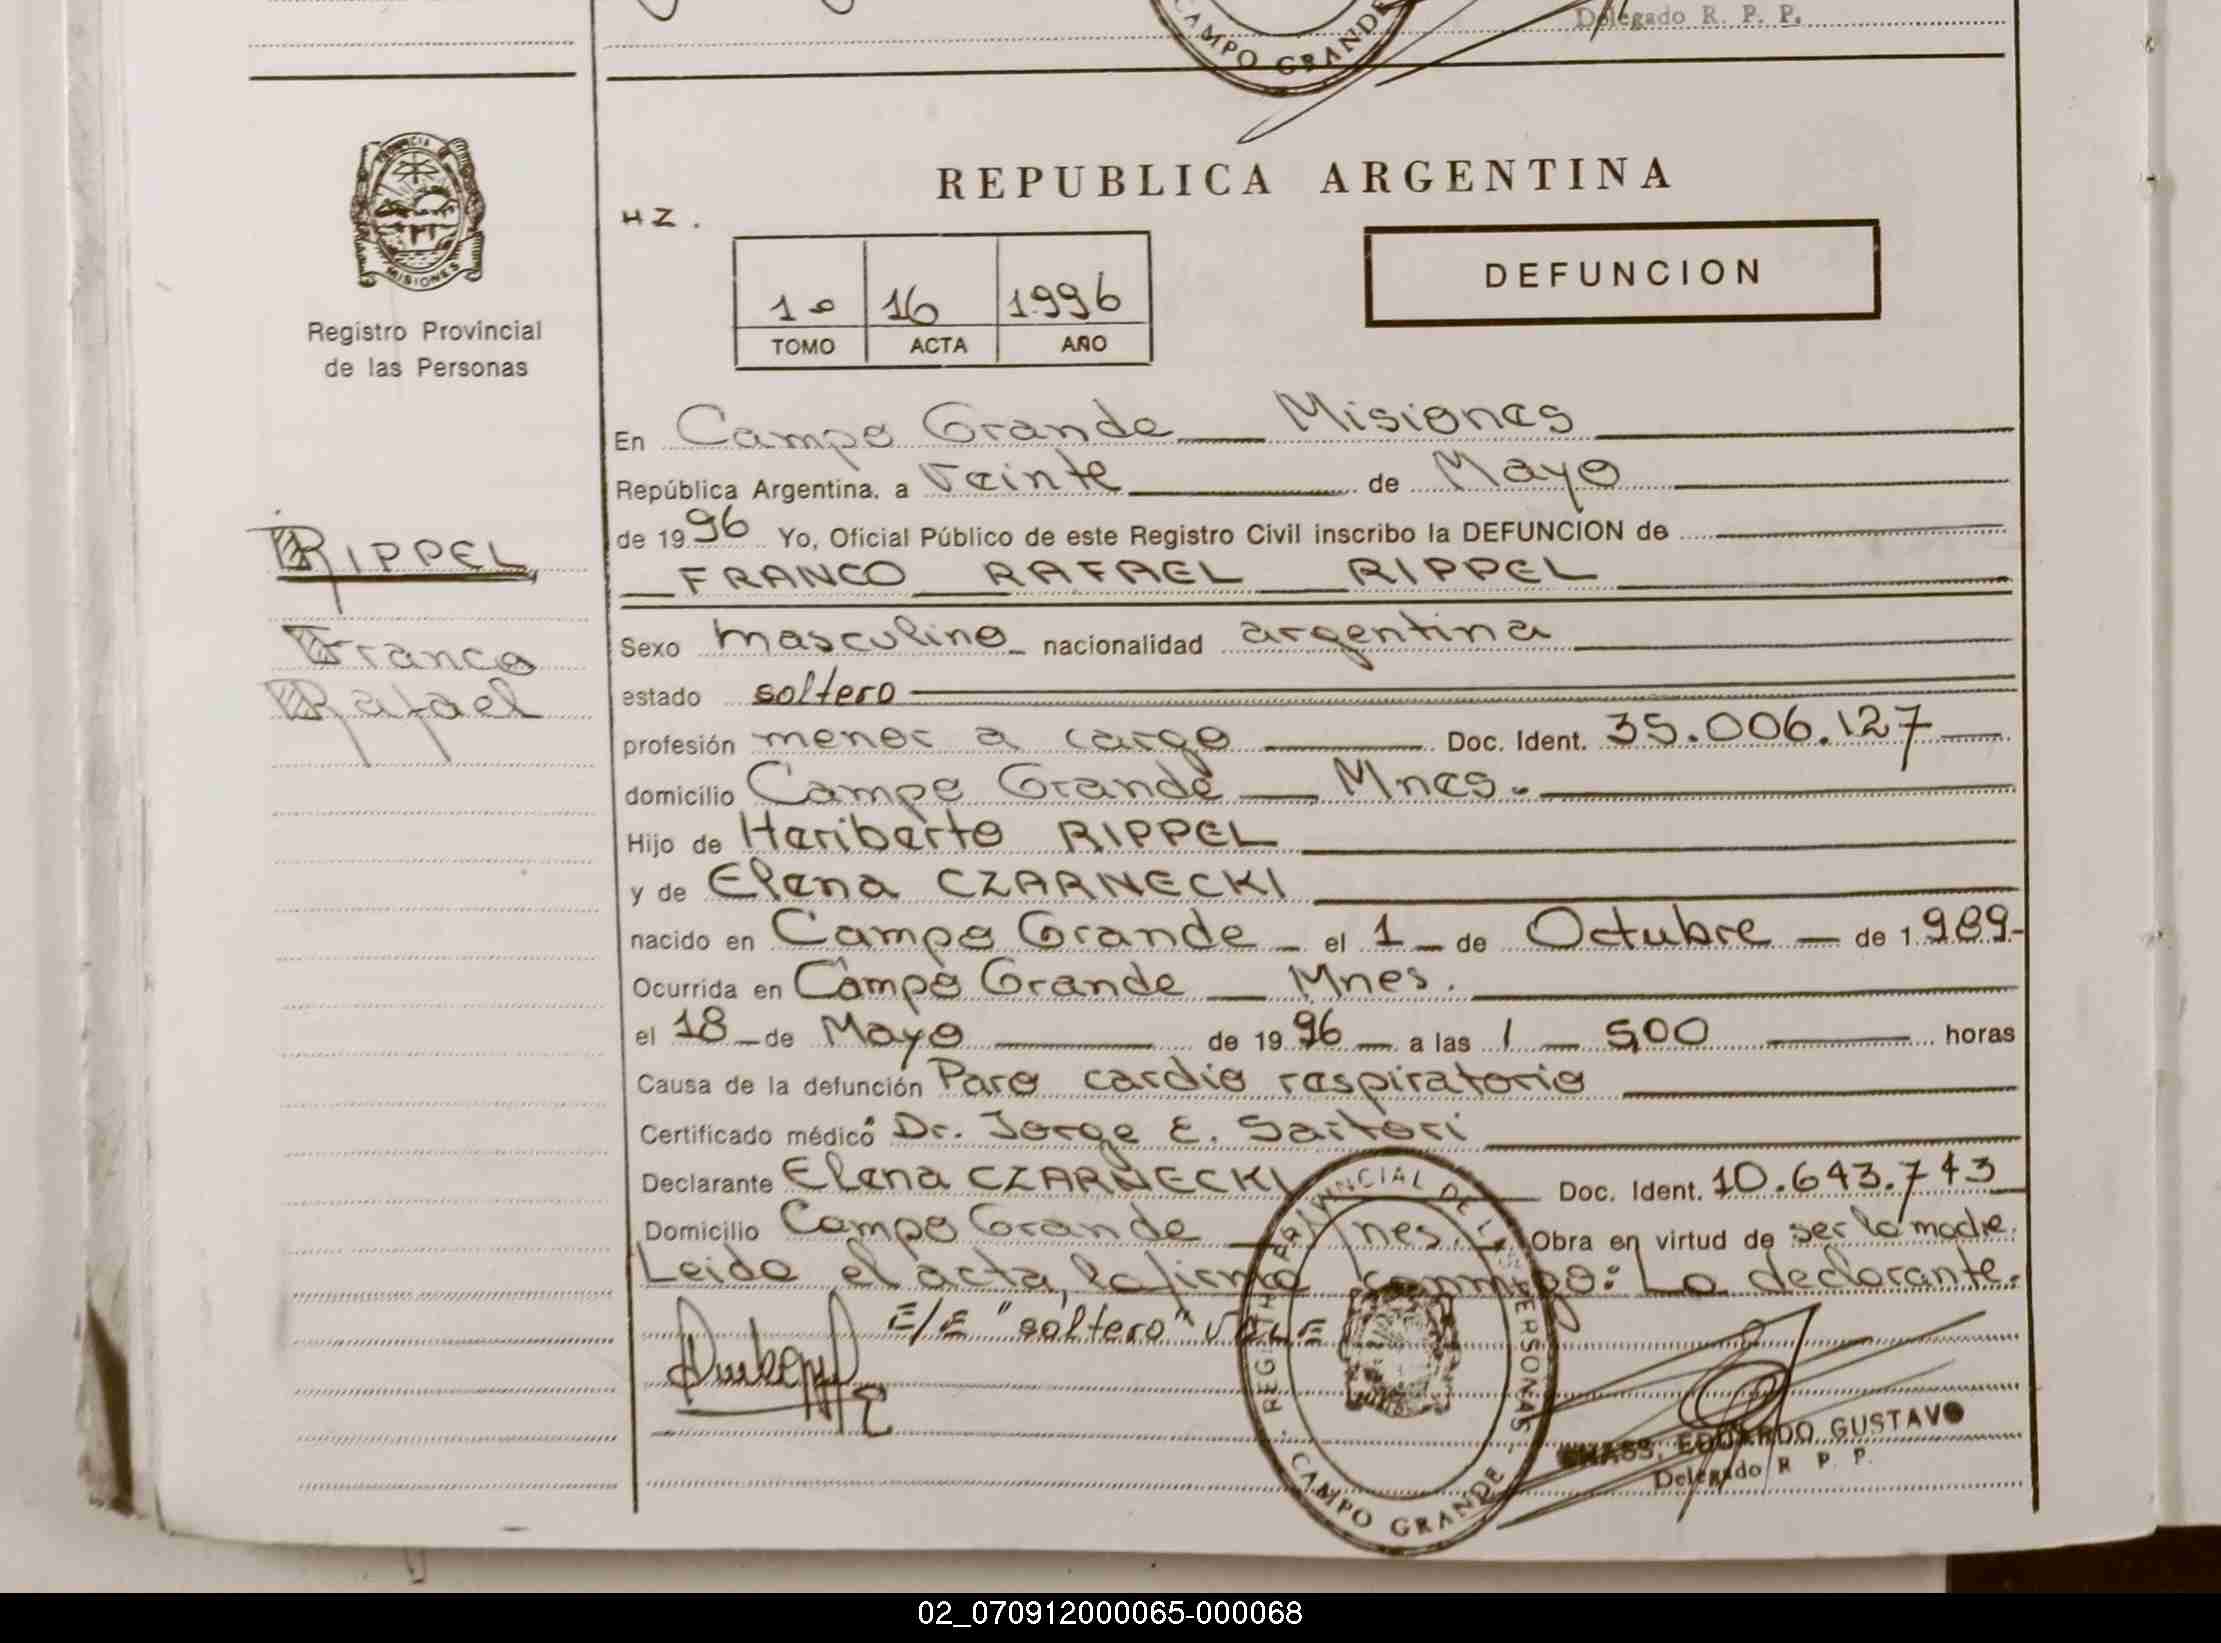 Delegado R. P. P.
CAMPO GRANDE
PROVINCIA DE
MISIONES
Registro Provincial
de las Personas
REPUBLICA ARGENTINA
HZ.
DEFUNCION
1º 16 1996
TOMO ACTA AÑO
En Campo Grande Misiones
República Argentina, a Veinte de Mayo
de 1996 Yo, Oficial Público de este Registro Civil inscribo la DEFUNCION de
RIPPEL
FRANCO RAFAEL RIPPEL
Franco
Rafael
Sexo masculino nacionalidad argentina
estado soltero
profesión menor a cargo Doc. Ident. 35.006.127
domicilio Campo Grande Mnes.
Hijo de Heriberto RIPPEL
y de Elena CZARNECKI
nacido en Campo Grande el 1 de Octubre de 1.989.-
Ocurrida en Campo Grande Mnes.
el 18 de Mayo de 1996 a las 1 5,00 horas
Causa de la defunción Paro cardio respiratorio
Certificado médico Dr. Jorge E. Sartori
Declarante Elena CZARNECKI Doc. Ident. 10.643.743
Domicilio Campo Grande Mnes. Obra en virtud de ser la madre.
Leida el acta, la firma conmigo: La declarante.
E/E "soltero" VALE
REGISTRO PROVINCIAL DE LAS PERSONAS - CAMPO GRANDE -
EDUARDO GUSTAVO
Delegado R. P. P.
02_070912000065-000068